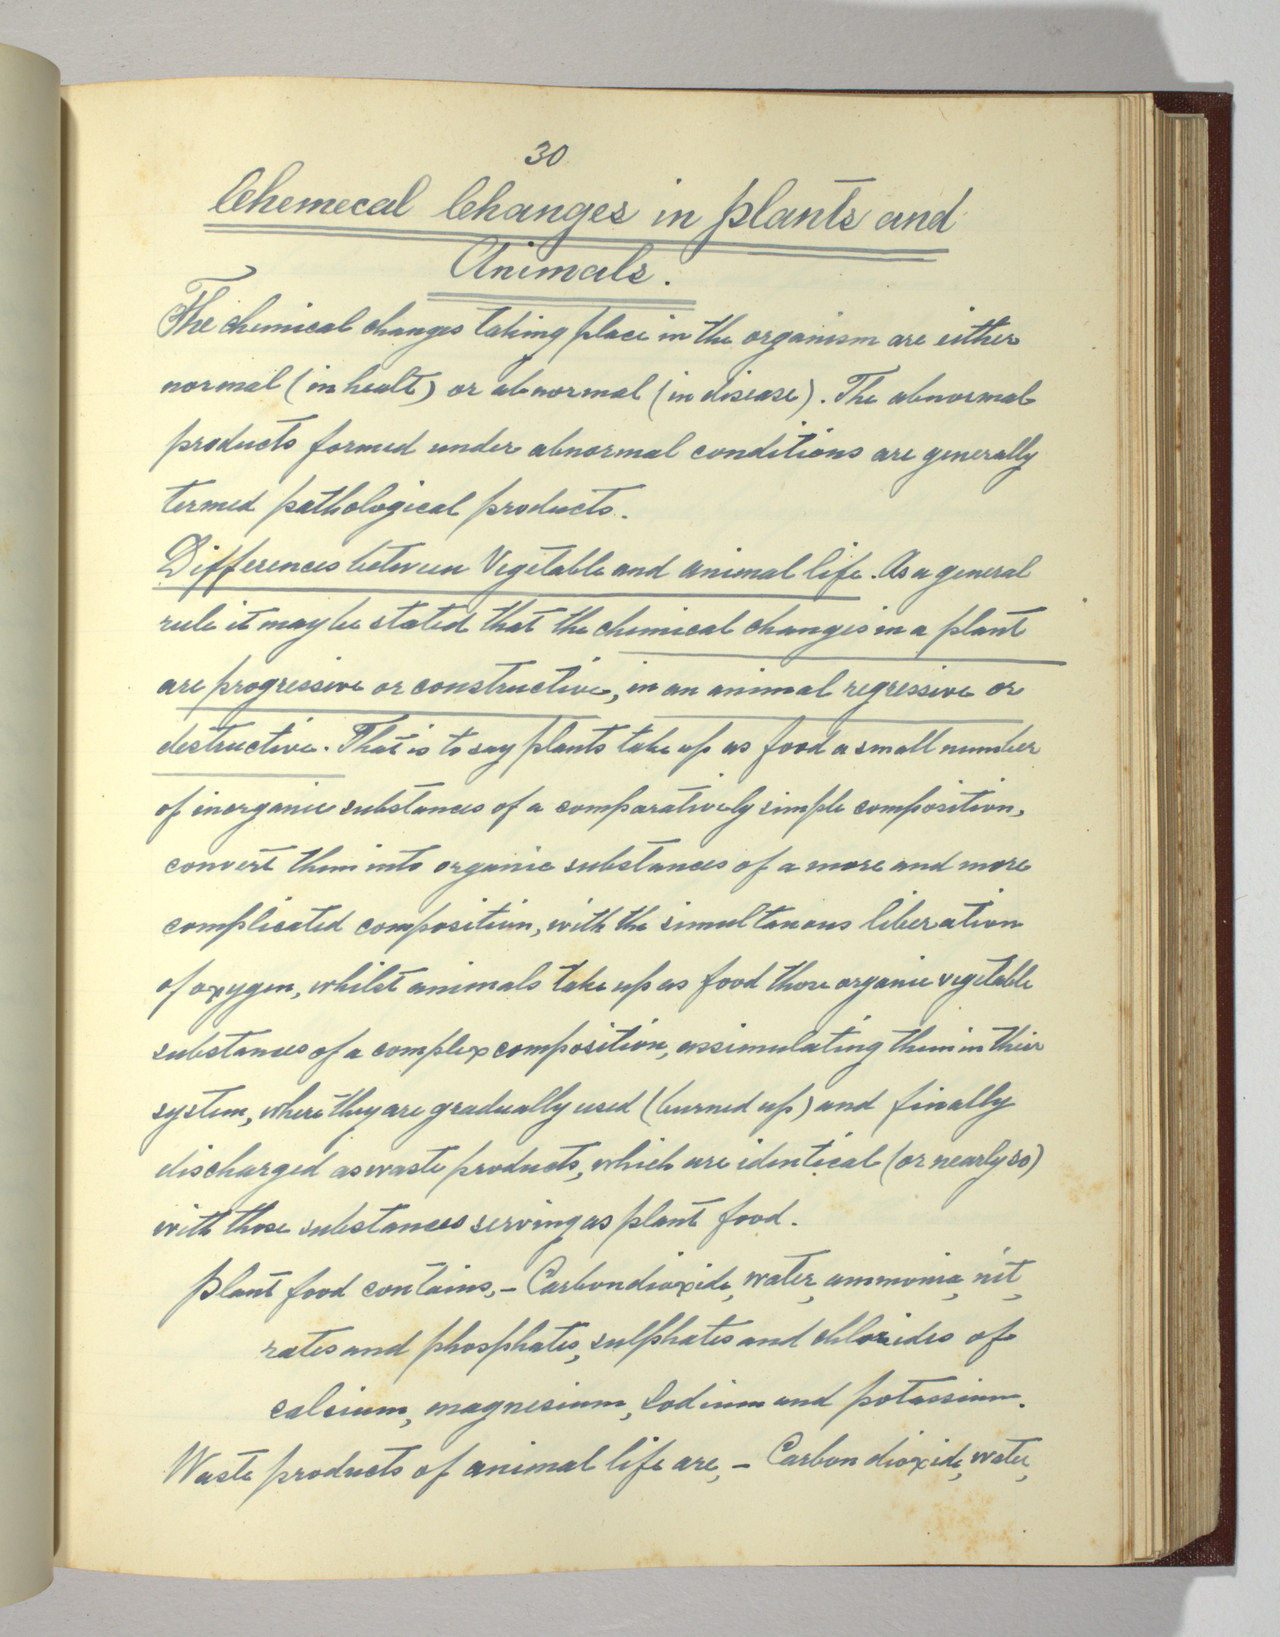 30
Chemecal Changes in plants and
Animals.
The chemical changes taking place in the organism are either
normal (in healt) or abnormal (in disease). The abnormal
products formed under abnormal conditions are generally
termed pathological products.
Differences between Vegetable and animal life. As a general
rule it may be stated that the chemical changes in a plant
are progressive or constructive, in an animal regressive or
destructive. That is to say plants take up as food a small number
of inorganic substances of a comparatively simple composition,
convert them into organic substances of a more and more
complicated composition, with the simultanous liberation
of oxygen, whilst animals take up as food those organic vegetable
substances of a complex composition, assimulating them in their
system, where they are gradually used (burned up) and finally
discharged as waste products, which are identical (or nearly so)
with those substances serving as plant food.
plant food contains, - Carbondioxide, water, ammonia, nit,
rates and phosphates, sulphates and chlorides of
calcium, magnesium, Sodium and potassium.
Waste products of animal life are, - Carbon dioxide, water,